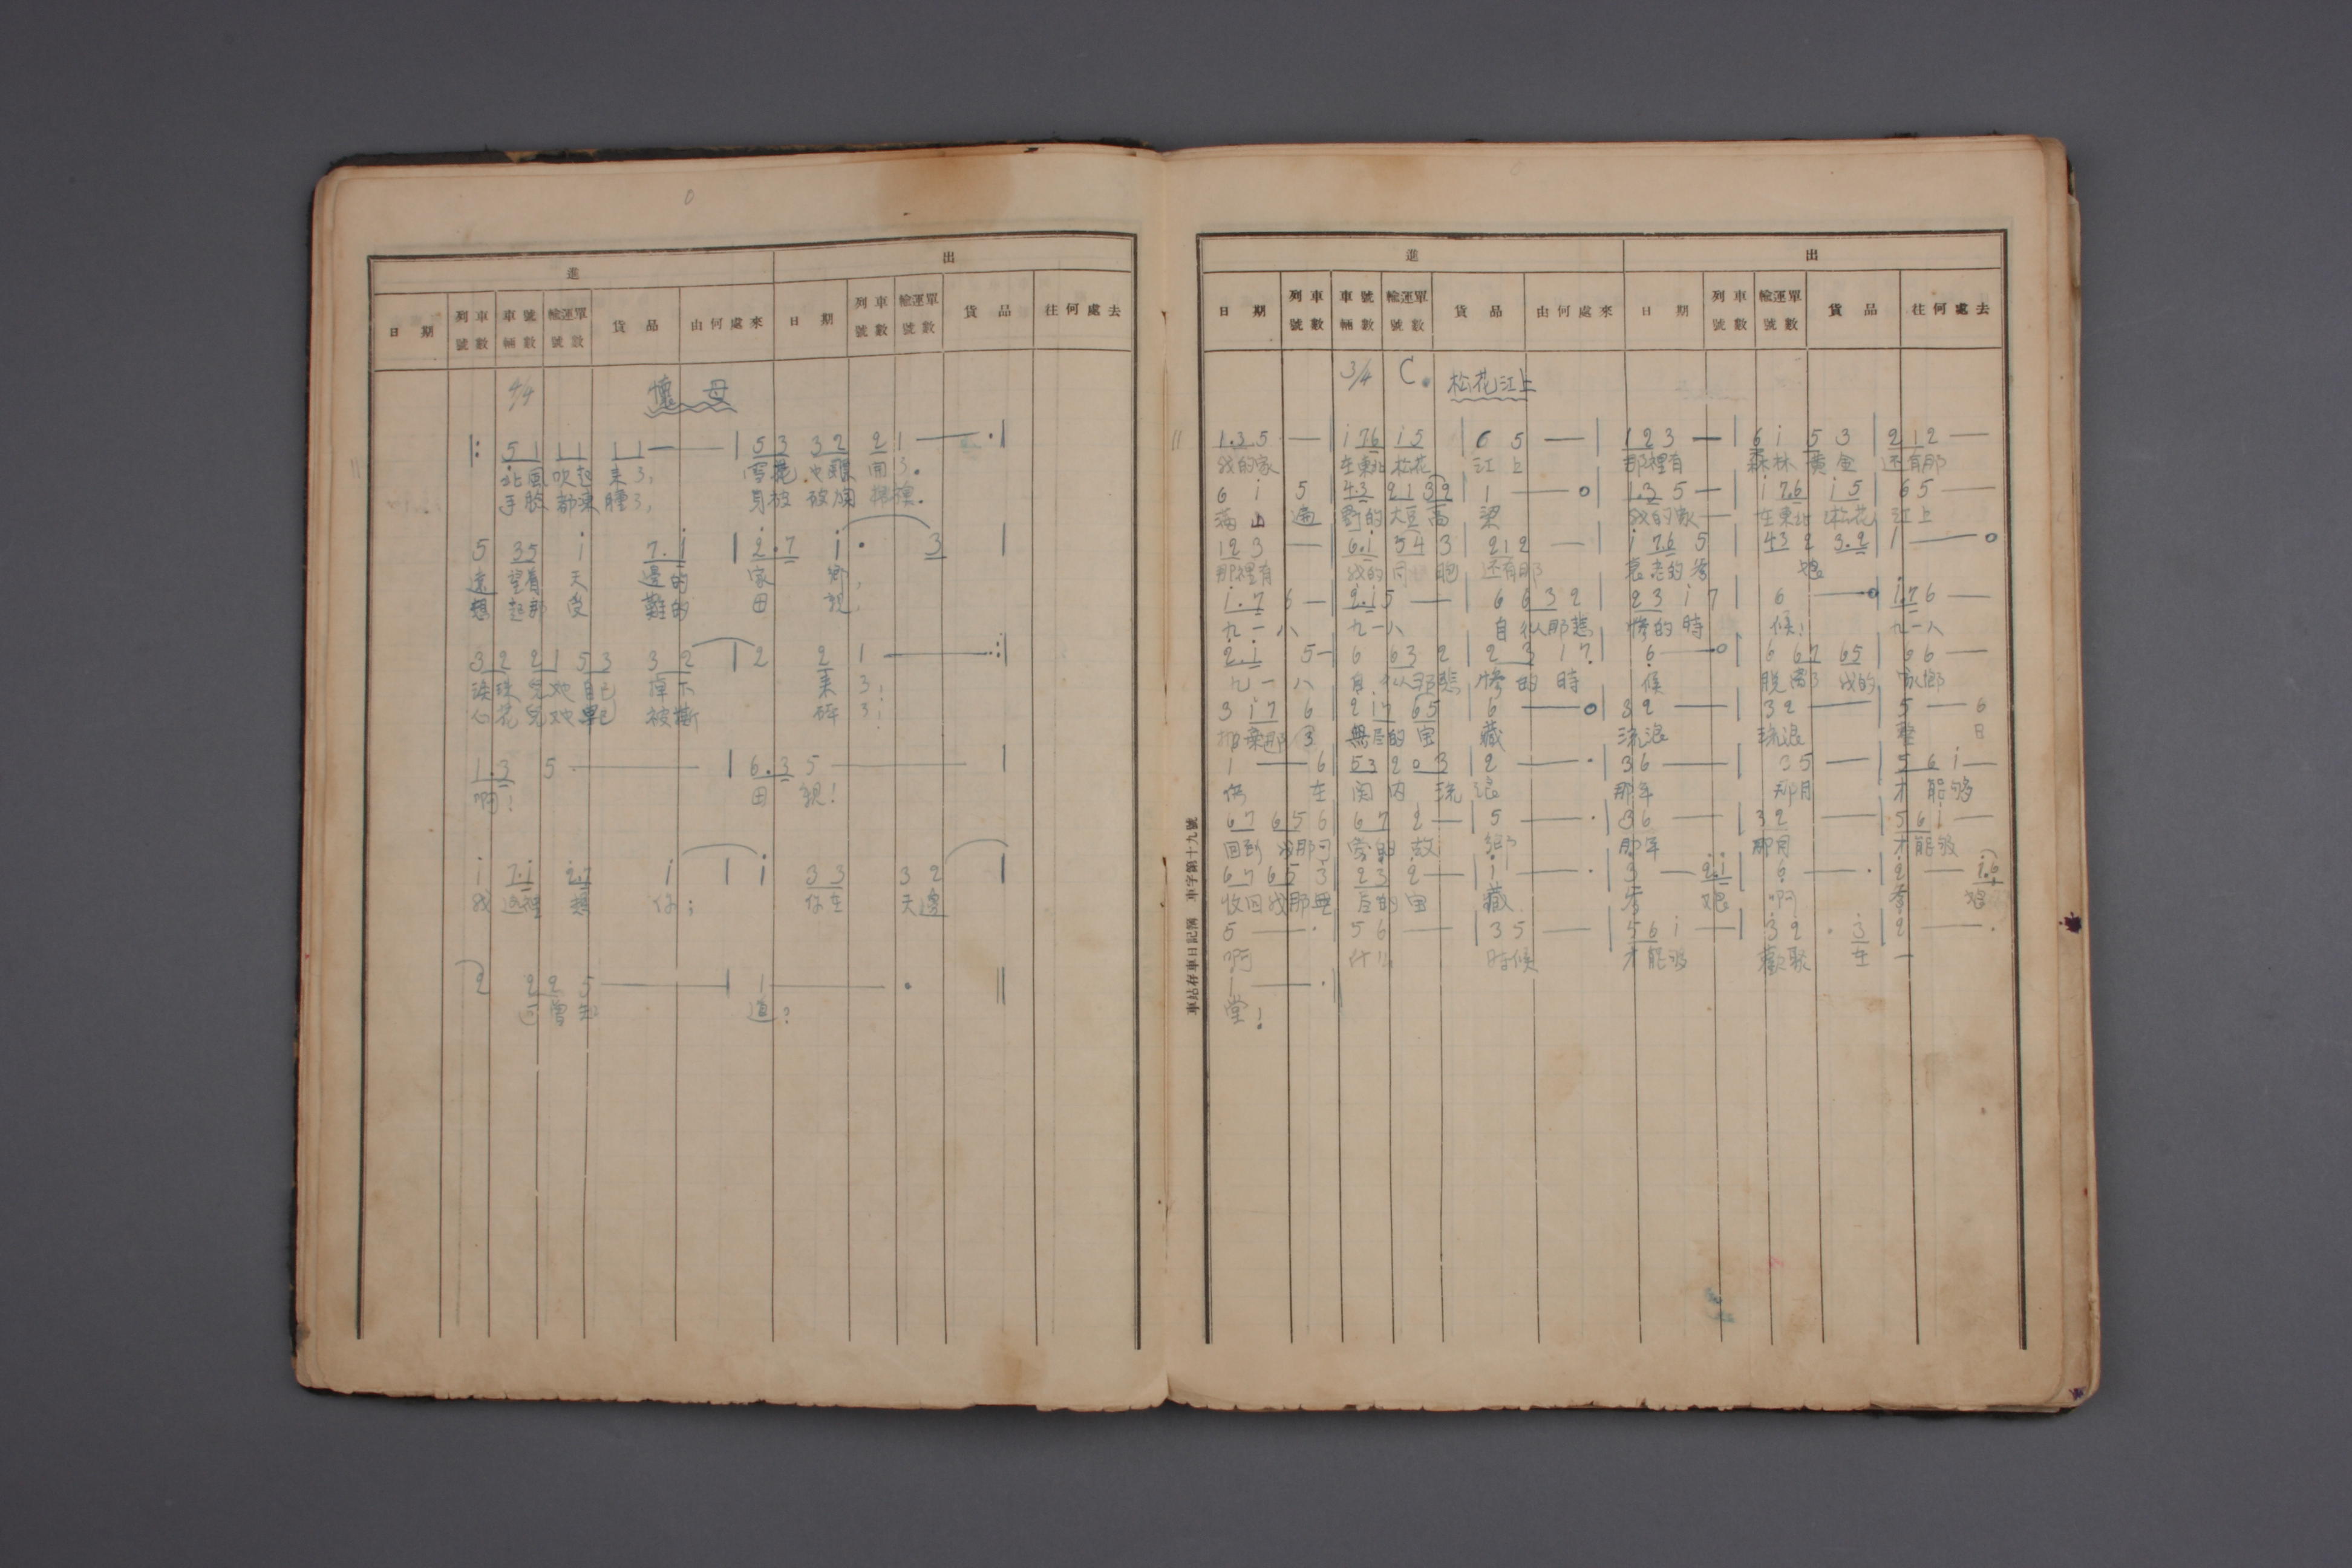 進 出
日期 列車號數 車號輛數 輸運單號數 貨品 由何處來 日期 列車號數 輸運單號數 貨品 往何處去
4/4 懷母
|: 5 1 1 1 1 1 — — | 5 3 3 2 2 1 — · |
北風 吹起 來了, 雪花 開了.
手腳 都凍 腫了, 身被 破爛
5 35 i 7. i | 2. 7 i · 3 |
遠 望着 天 邊的 家 鄉,
想 起那 受 難的 田 親
3 2 2 1 5 3 3 2 | 2 2 1 — :|
淚珠 兒她 自己 掉下 來了!
心花 兒她 被撕 碎了!
1. 3 5 — | 6. 3 5 —
啊! 田 親!
i 7. i 2.7 i | i 3 3 3 2 |
我 這裡 想 你; 你在 天邊
2 2 2 5 — | 1 — · ||
可曾知 道?
進 出
日期 列車號數 車號輛數 輸運單號數 貨品 由何處來 日期 列車號數 輸運單號數 貨品 往何處去
3/4 C. 松花江上
1.3 5 — | i 76 i 5 | 6 5 — | 1 2 3 — | 6 i 5 3 | 2 1 2 —
我的家 在東北 松花 江上 那裡有 森林 黃金 还有那
6 i 5 | 4.3 2 1 3 2 | 1 — 0 | 1.3 5 — | i 7.6 i 5 | 6 5 —
滿山遍 野的 大豆高 梁 我的家 在東北 松花 江上
1 2 3 — | 6.i 5 4 3 | 2 1 2 — | i 7.6 5 | 4 3 2 3.2 | 1 — 0
那裡有 我的同胞 还有那 衰老的爹 娘
i.7 6 — | 2.i 5 — | 6 6 3 2 | 2 3 i 7 | 6 — 0 | i.7 6 —
九一八 九一八 自從那悲 慘的時 候! 九一八
2.i 5 — | 6 6 3 2 | 2 3 1 7 | 6 — 0 | 6 6 7 6 5 | 6 6 —
九一八 自從那悲 慘的時 候 脫離了我的 家鄉
3 i 7 6 | 2 1 7 6 5 | 6 — 0 | 3 2 — | 3 2 — | 5 — 6
拋棄那了 無尽的宝 藏 流浪 流浪 整日
1 — 6 | 5 3 2 0 3 | 2 — · | 3 6 — | 3 5 — | 5 6 i —
價在 関内流 浪 那年 那月 才能够
6 7 6 5 6 | 6 7 2 — | 5 — · | 3 6 — | 3 2 — | 5 6 i —
回到我那可 愛的故 鄉 那年 那月 才能够
6 7 6 5 3 | 2 3 2 — | i — · | 3 — 2.i | 6 — · | 2 — 1.6
收回我那無 尽的宝 藏 爹娘 啊 爹娘
5 — · | 5 6 — | 3 5 — | 5 6 i — | 3 2 · 3 | 2 — ·
啊 什么 時候 才能够 歡聚在 一
1 — · |
堂!
車站存車日記簿 車字第十九號